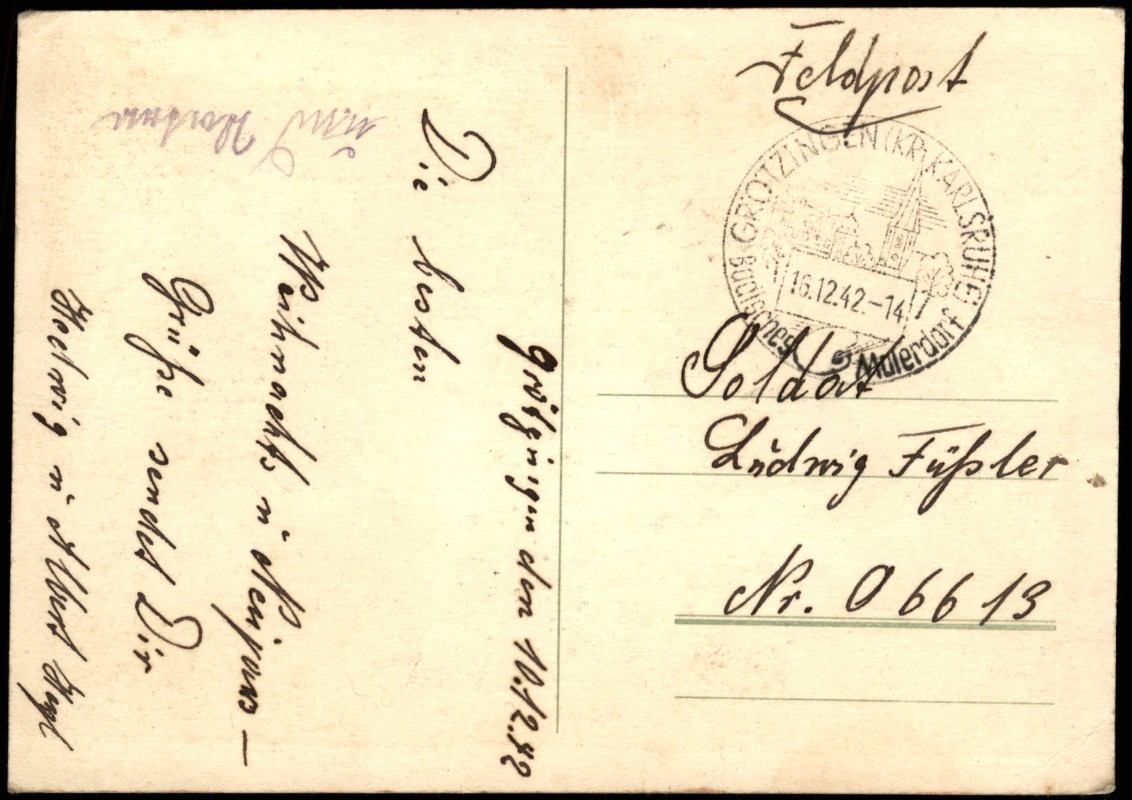 Feldpost
GRÖTZINGEN (KR. KARLSRUHE)
16.12.42.-14
Badisches Malerdorf
Soldat
Ludwig Füßler
Nr. 06613
Grötzingen den 10.12.42
Die besten
Weihnachts u Neujahrs –
Grüße sendet Dir
Hedwig u Albert
und